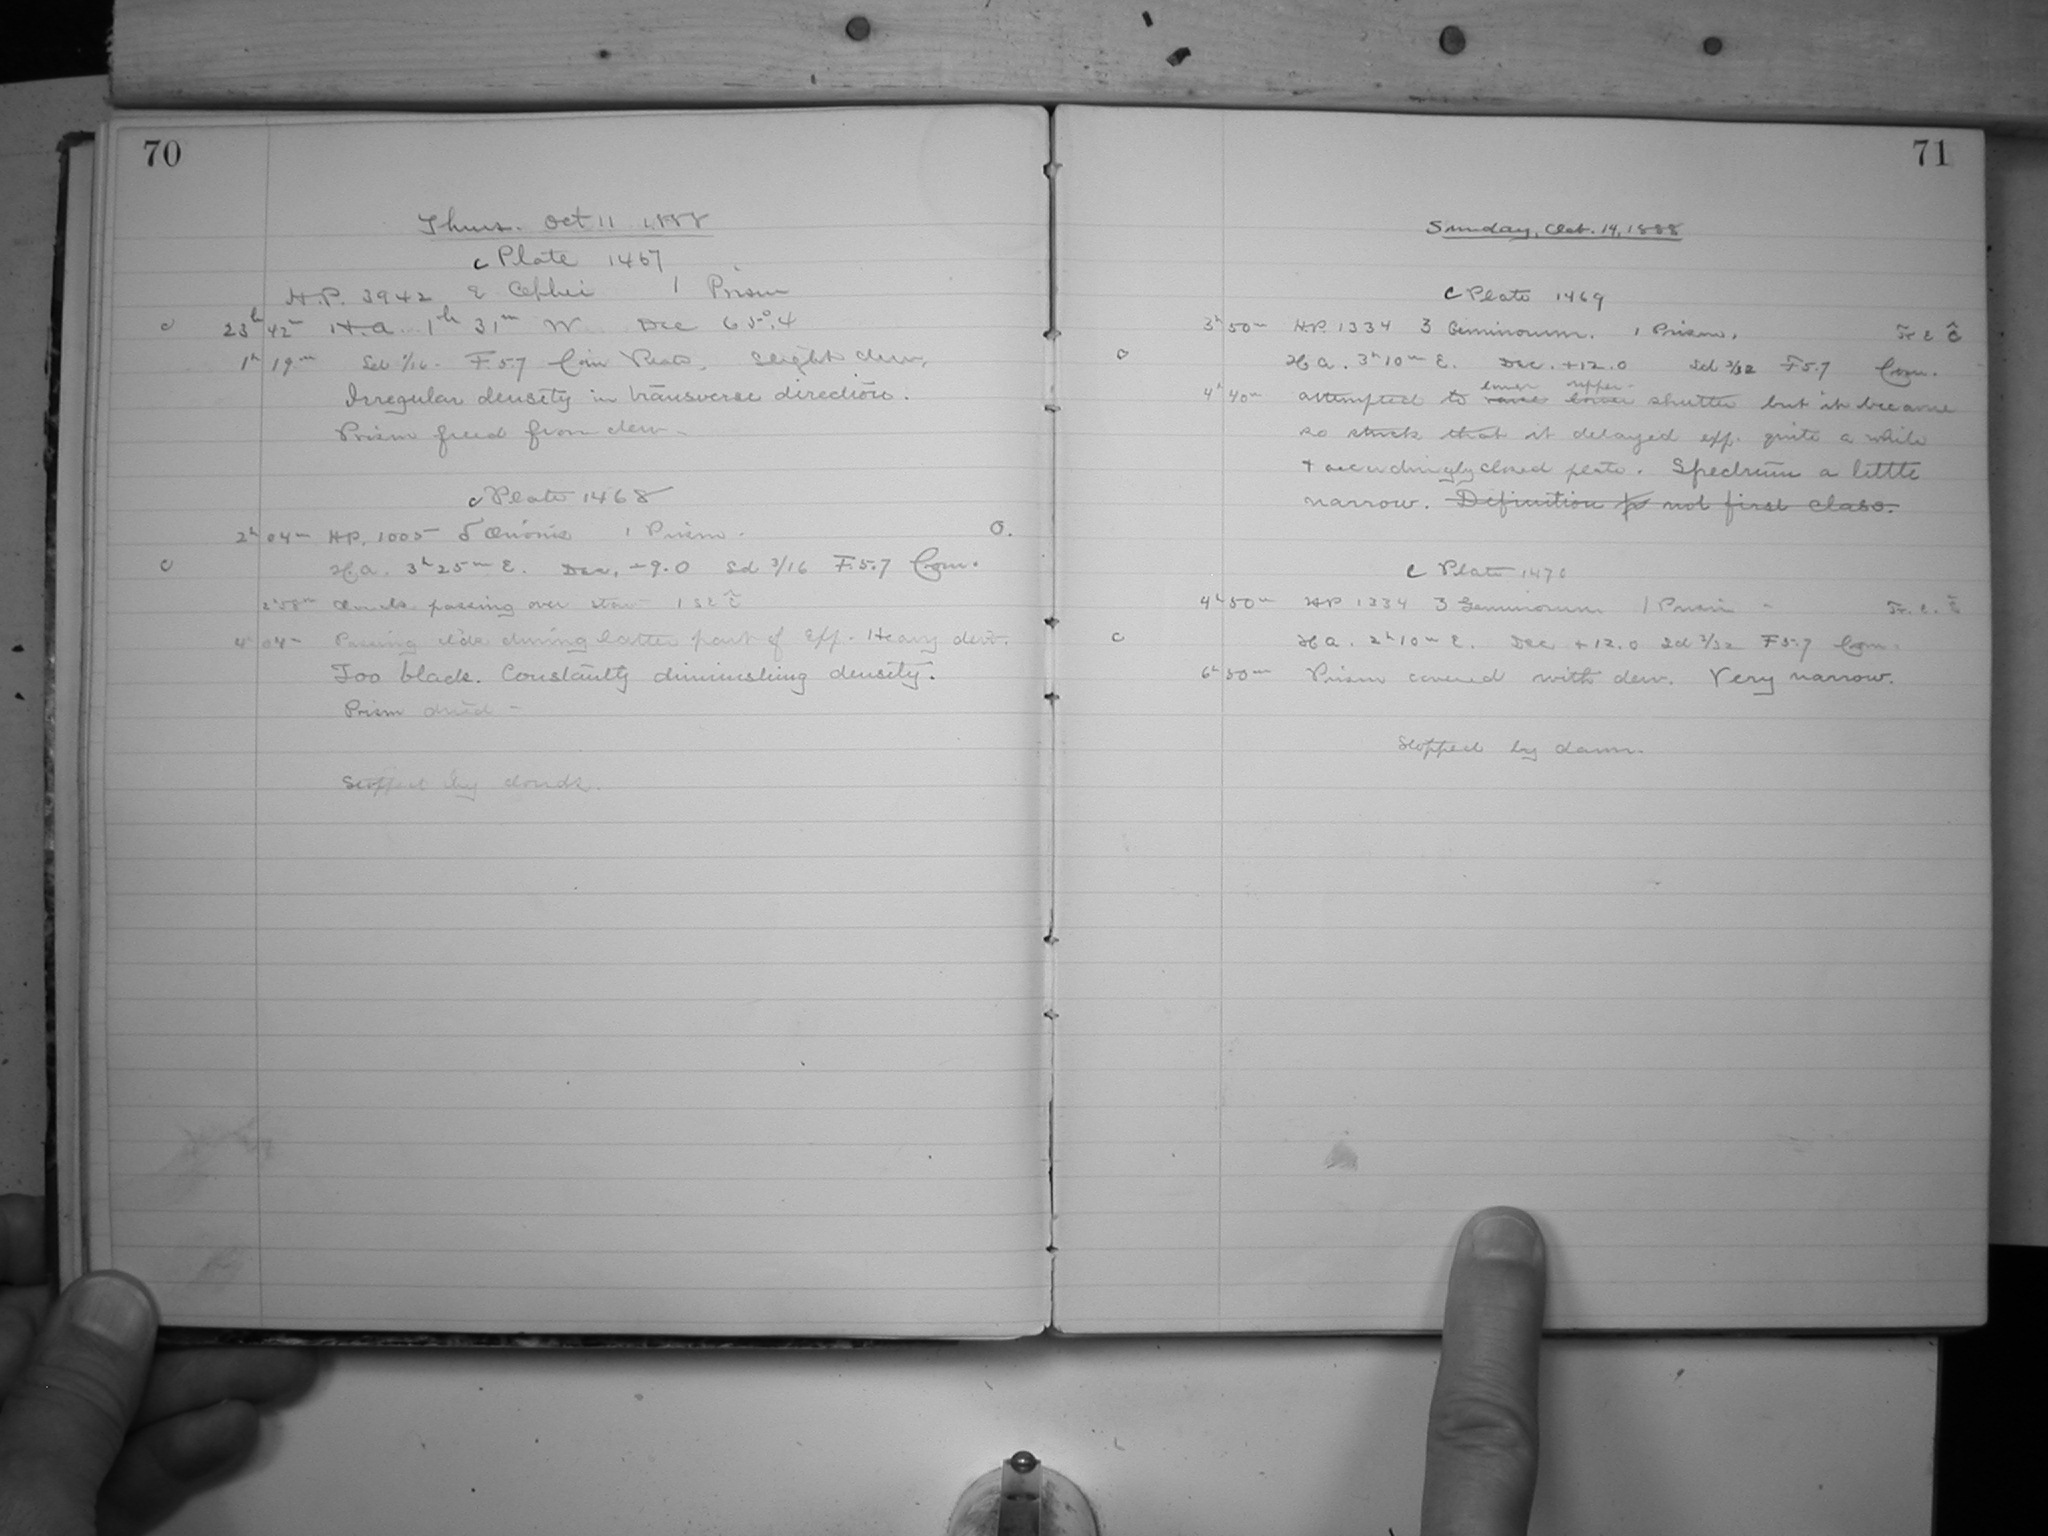 70
Thurs. Oct 11 1888
c Plate 1467
H.P. 3942 ε Cephei 1 Prism
c 23h 42m H.a. 1h 31m W Dec 65°.4
1h 19m Sd 1/16. F.5.7 Com Plate, slight dew,
Irregular density in transverse direction.
Prism freed from dew.
c Plate 1468
2h 04m H.P. 1005 δ Orionis 1 Prism. O.
c H.a. 3h 25m E. Dec. -9.0 Sd 3/16 F.5.7 Com.
2h 58m Clouds passing over star
4h 04m Passing clds during latter part of exp. Heavy dew.
Too black. Constantly diminishing density.
Prism dried -
Stopped by clouds.
71
Sunday, Oct. 14, 1888
c Plate 1469
3h 50m H.P. 1334 3 Geminorum. 1 Prism.
c H.a. 3h 10m E. Dec. +12.0 Sd 3/32 F5.7 Com.
lower upper
4h 40m attempted to raise lower shutter but it became
so stuck that it delayed exp. quite a while
+ accordingly closed plate. Spectrum a little
narrow. Definition not first class.
c Plate 1470
4h 50m H.P. 1334 3 Geminorum 1 Prism -
c H.a. 2h 10m E. Dec +12.0 Sd 3/32 F5.7 Com.
6h 50m Prism covered with dew. Very narrow.
Stopped by dawn.